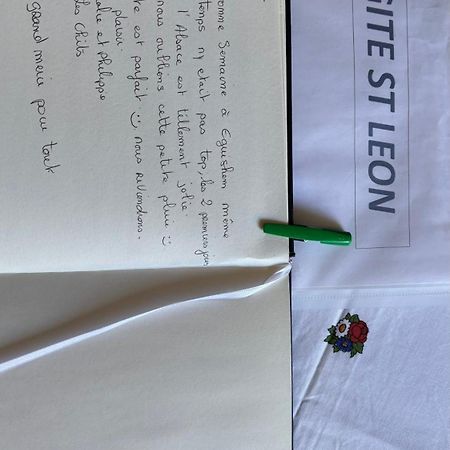 GITE ST LEON
onne Semaine à Eguishem même
temps n'y etait pas top, les 2 premiers jours
l'Alsace est tellement jolie
nous oublions cette petite pluie :)
te est parfait :) nous reviendrons.
plaisir
lie et philippe
les chtis
grand merci pour tout